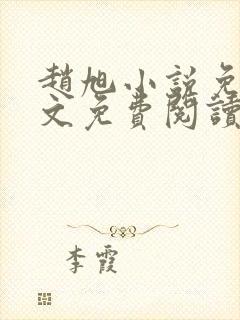 趙旭小說免
文免費閱讀
李霞